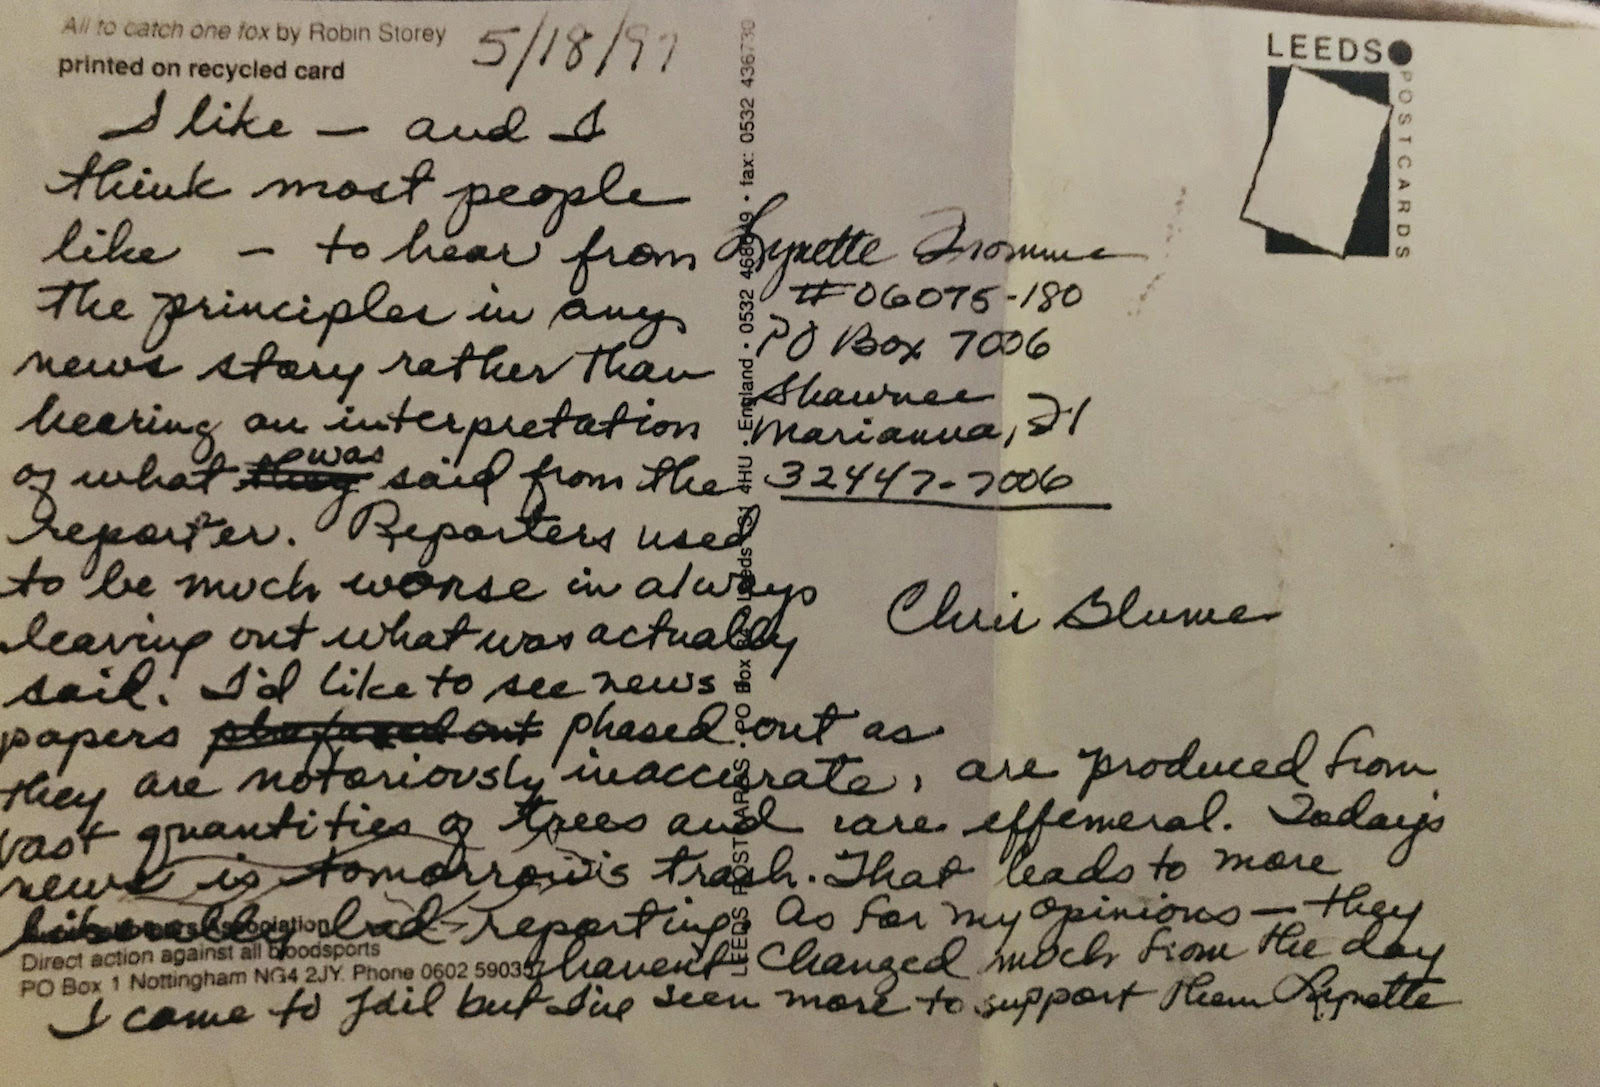 All to catch one fox by Robin Storey
printed on recycled card
5/18/97
I like — and I
think most people
like — to hear from
the principles in any
news story rather than
hearing an interpretation
of what they was said from the
reporter. Reporters used
to be much worse in always
leaving out what was actually
said. I'd like to see news
papers phased out as
they are notoriously inaccurate, are produced from
vast quantities of trees and are effemeral. Todays
news is tomorrow's trash. That leads to more
bad reporting. As for my opinions — they
havent changed much from the day
I came to jail but I've seen more to support them Lynette
Association
Direct action against all bloodsports
PO Box 1 Nottingham NG4 2JY. Phone 0602 59035
LEEDS POSTCARDS . PO Box 4HU . England . 0532 fax: 0532 436730
Lynette Fromme
#06075-180
PO Box 7006
Shawnee
Marianna, Fl
32447-7006
Chris Blume
LEEDS
POSTCARDS